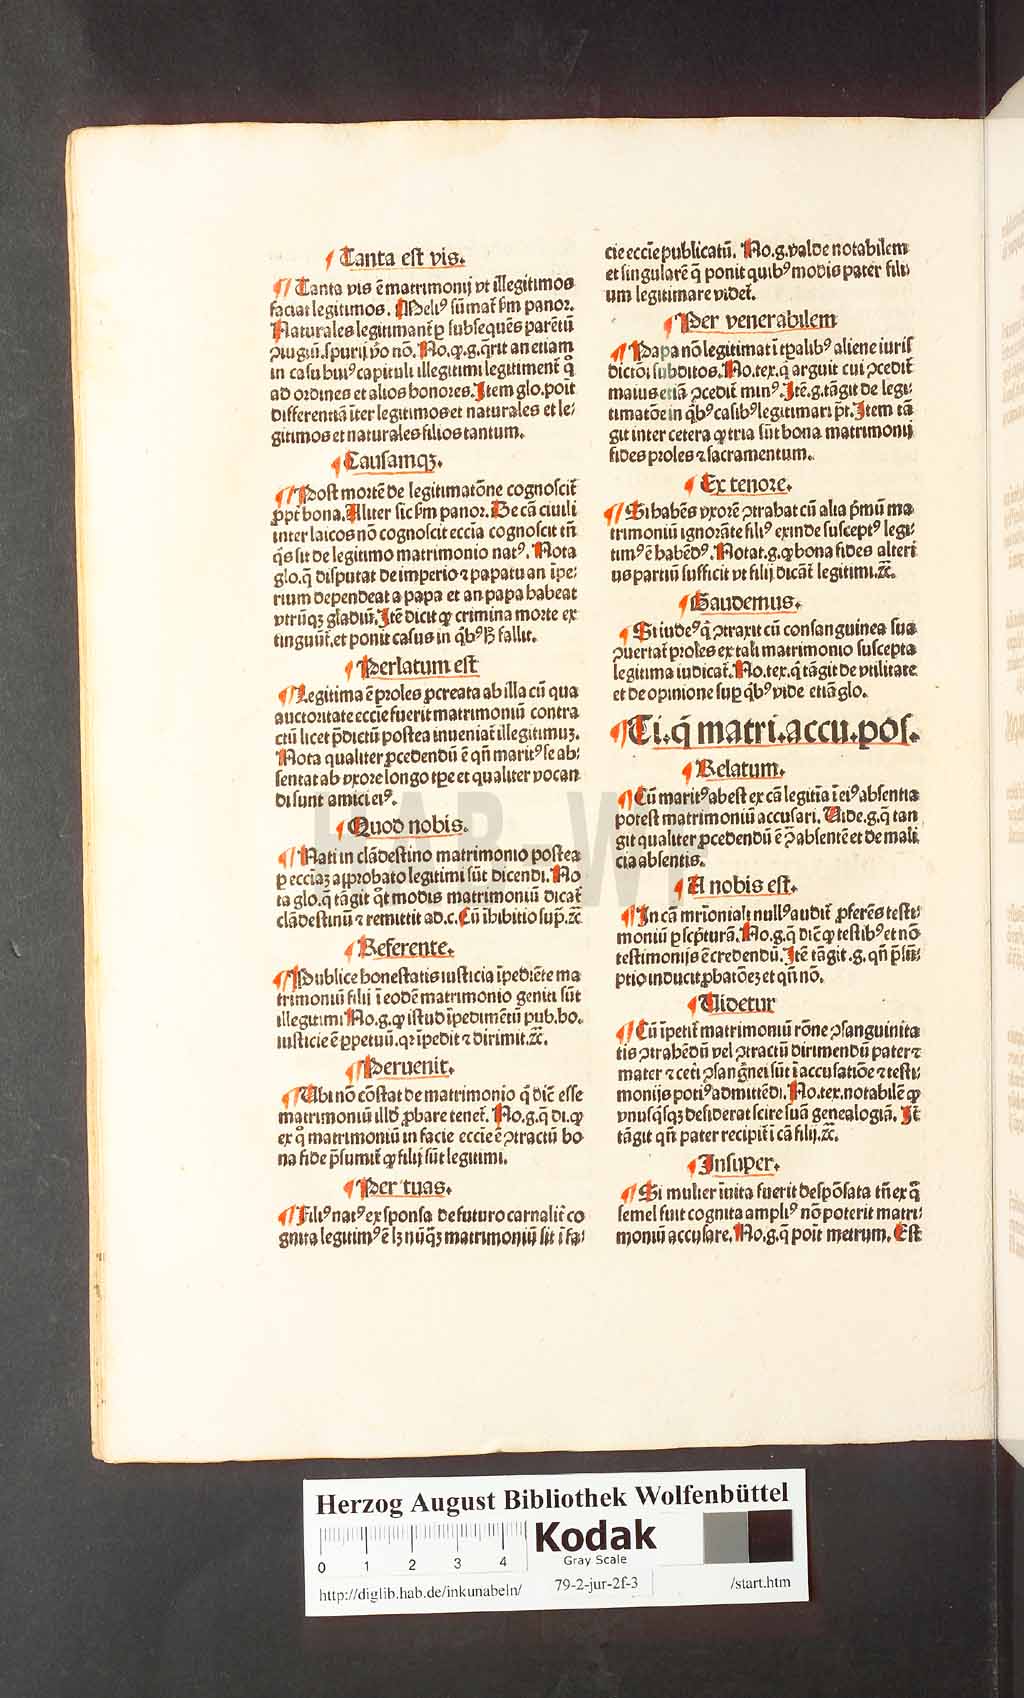 ¶ Tanta est vis.
¶ Tanta vis ē matrimonij vt illegitimos
faciat legitimos. Meli⁹ sūmat͛ ẜm panor.
Naturales legitimant͛ ꝑ subsequēs parētū
ↄiugiū.spurij ṽo nō. No.ꝙ.g.q̄rit an etiam
in casu hui⁹ capituli illegitimi legitiment͛ q̊
ad ordines et alios honores. Item glo.poīt
differentiā īter legitimos et naturales et le⸗
gitimos et naturales filios tantum.
¶ Causamqꝫ.
¶ Post mortē de legitimatōne cognoscit͛
ꝓpt͛ bona. Aliter sic ẜm panor. De cā ciuili
inter laicos nō cognoscit eccīa cognoscit tn̄
q̄s sit de legitimo matrimonio nat⁹. Nota
glo.q̄ disputat de imperio ⁊ papatu an īpe⸗
rium dependeat a papa et an papa habeat
vtrūqꝫ gladiū. Itē dicit ꝙ crimina morte ex
tinguūt͛.et ponit casus in q̄b⁹ ħ fallit.
¶ Perlatum est
¶ Legitima ē proles ꝓcreata ab illa cū qua
auctoritate eccīe fuerit matrimoniū contra
ctū licet p̄dictū postea inueniat͛ illegitimuꝫ.
Nota qualiter ꝓcedendū ē qn̄ marit⁹ se ab⸗
sentat ab vxore longo tp̄e et qualiter vocan
di sunt amici ei⁹.
¶ Quod nobis.
¶ Nati in clādestino matrimonio postea
ꝑ ecciaꝫ aꝓprobato legitimi sūt dicendi. No
ta glo.q̄ tāgit q̊t modis matrimoniū dicat͛
clādestinū ⁊ remittit ad.c. Cū īhibitio sup̄.⁊c̄
¶ Referente.
¶ Publice honestatis iusticia īpediēte ma
trimoniū filij ī eodē matrimonio geniti sūt
illegitimi No.g.ꝙ istud īpedimētū pub.ho.
iusticie ē ꝑpetuū.qꝛ īpedit ⁊ dirimit.⁊c̄.
¶ Peruenit.
¶ Ubi nō cōstat de matrimonio q̄ dic̄ esse
matrimoniū illd̄ ꝓbare tenet͛. No.g.q̄ di.ꝙ
ex q̊ matrimoniū in facie eccīe ē ↄtractū bo
na fide p̄sumit͛ ꝙ filij sūt legitimi.
¶ Per tuas.
¶ Fili⁹ nat⁹ ex sponsa de futuro carnalit͛ co
gnita legitim⁹ ē lꝫ nūq̄ꝫ matrimoniū sit ī fa⸗
cie eccīe publicatū. No.g.valde notabilem
et singularē q̄ ponit quib⁹ modis pater fili
um legitimare videt͛.
¶ Per venerabilem
¶ Papa nō legitimat ī tp̄alib⁹ aliene iuris
dictōi subditos. No.tex.q̄ arguit cui ↄcedit͛
maius etiā ↄcedit͛ min⁹. Itē.g.tāgit de legi⸗
timatōe in q̄b⁹ casib⁹ legitimari p̄t. Item tā
git inter cetera ꝙ tria sūt bona matrimonij
fides proles ⁊ sacramentum.
¶ Ex tenore.
¶ Si habēs vxorē ↄtrahat cū alia p̄mū ma
trimoniū ignorāte fili⁹ exinde suscept⁹ legi⸗
tim⁹ ē habēd⁹. Notat.g.ꝙ bona fides alteri
us partiū sufficit vt filij dicāt͛ legitimi.⁊c̄.
¶ Gaudemus.
¶ Si iude⁹ q̄ ↄtraxit cū consanguinea sua
ↄuertat͛ proles ex tali matrimonio suscepta
legitima iudicat͛. No.tex.q̄ tāgit de vtilitate
et de opinione sup̄ q̄b⁹ vide etiā glo.
¶ Ti.q̄ matri.accu.pos.
¶ Relatum.
¶ Cū marit⁹ abest ex cā legitīa ī ei⁹ absentia
potest matrimoniū accusari. Vide.g.q̄ tan
git qualiter ꝓcedendū ē ↄ̄ absentē et de mali
cia absentis.
¶ A nobis est.
¶ In cā mr̄ioniali null⁹ audit͛ ꝓferēs testi⸗
moniū ꝑ scp̄turā. No.g.q̄ dic̄ ꝙ testib⁹ et nō
testimonijs ē credendū. Itē tāgit .g. qn̄ p̄sūi⸗
ptio inducit ꝓbatōeꝫ et qn̄ nō.
¶ Videtur
¶ Cū īpetit͛ matrimoniū rōne ↄsanguinita
tis ↄtrahēdū vel ↄtractū dirimendū pater ⁊
mater ⁊ ceti ↄsang̃nei sūt ī accusatiōe ⁊ testi⸗
monijs poti⁹ admittēdi. No.tex.notabilē ꝙ
vnusq̄sqꝫ desiderat scire suā genealogiā. It̄
tāgit qn̄ pater recipit͛ ī cā filij.⁊c̄.
¶ Insuper.
¶ Si mulier īuita fuerit despōsata tn̄ ex q̊
semel fuit cognita ampli⁹ nō poterit matri⸗
moniū accusare. No.g.q̄ poīt metrum. Est
HAB-WF
Herzog August Bibliothek Wolfenbüttel
0 1 2 3 4
Kodak
Gray Scale
http://diglib.hab.de/inkunabeln/ 79-2-jur-2f-3 /start.htm